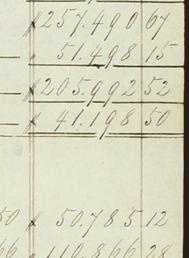 257.490 67
51.498 15
205.992 52
41.198 50
50 50.785 12
66 110.866 28